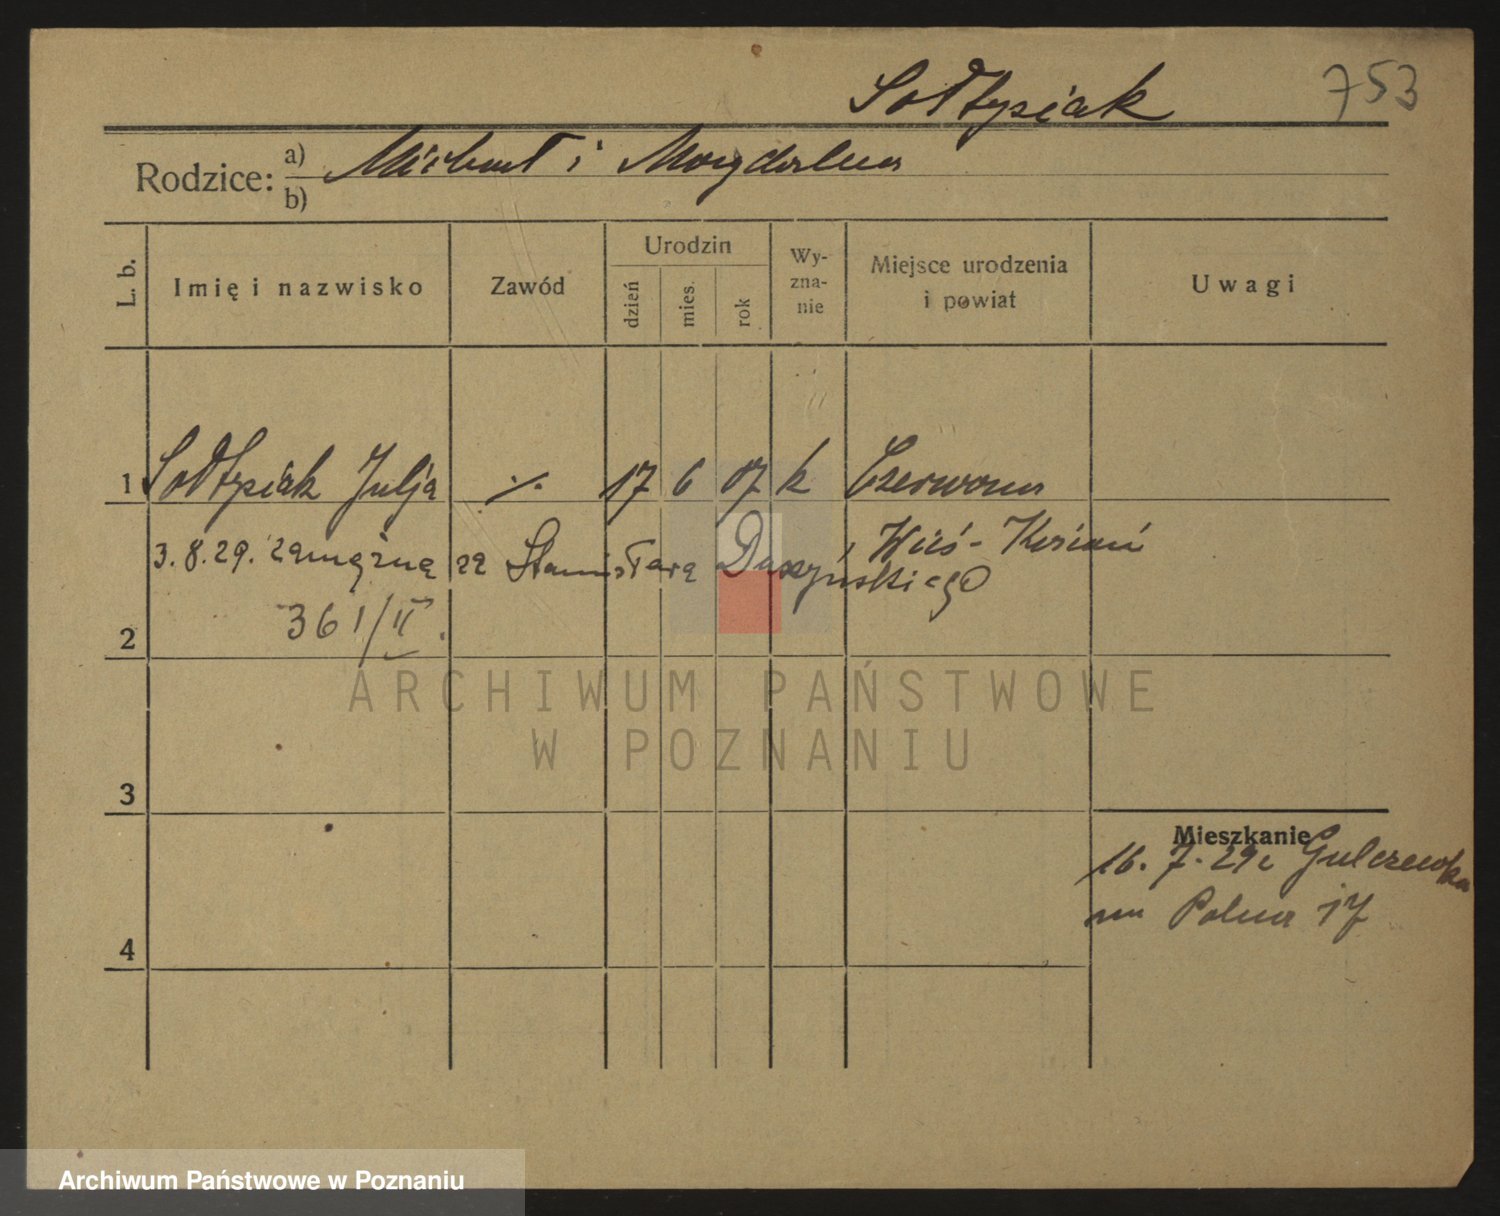 Sołtysiak 753
Rodzice: a) Michał i Magdalena
b)
L. b. Imię i nazwisko Zawód Urodzin dzień mies. rok Wy-zna-nie Miejsce urodzenia i powiat Uwagi
1 Sołtysiak Julja ·/· 17 6 07 k Czerwona
Wieś - Kościan
3.8.29. zamężna za Stanisława Daszyńskiego
2 361/II.
ARCHIWUM PAŃSTWOWE
W POZNANIU
3
Mieszkanie
16. 7. 29 z Gulczewka
na Polna 17
4
Archiwum Państwowe w Poznaniu